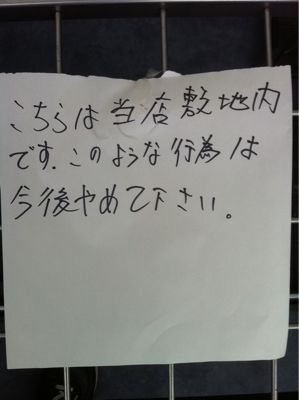 こちらは当店敷地内
です.このような行為は
今後やめて下さい。